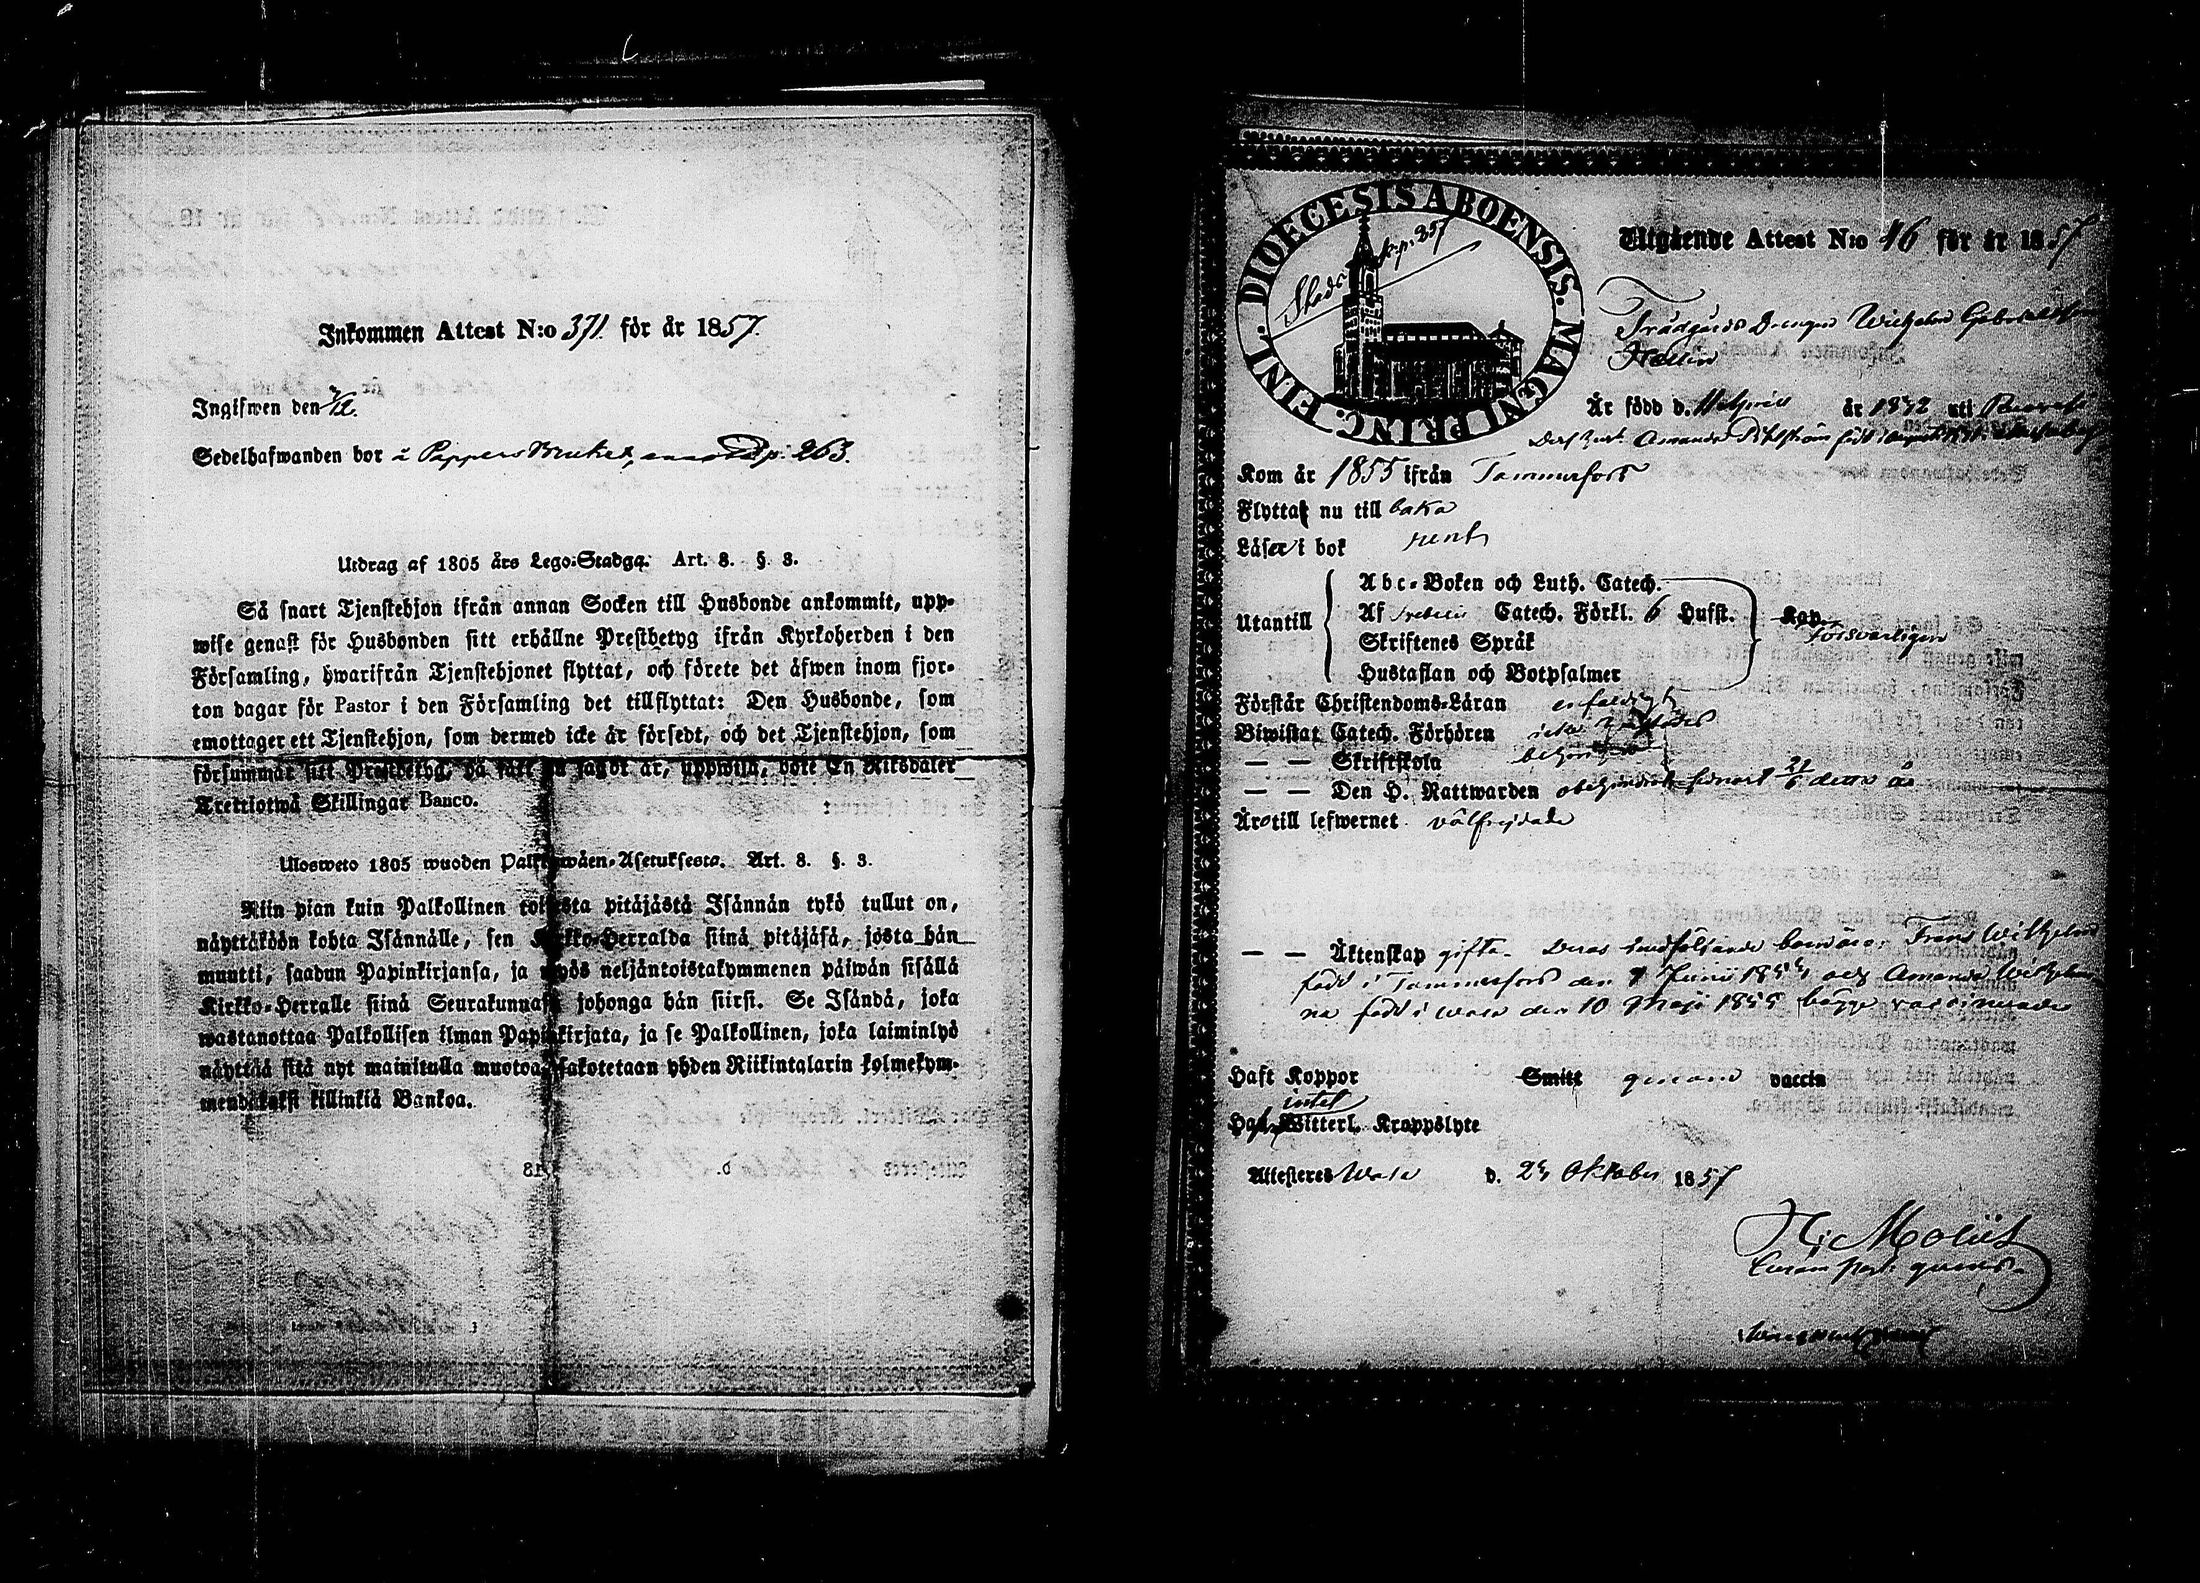 Inkommen Attest N:o 371. för år 1857.
Ingifwen den 7/12.
Sedelhafwanden bor å Pappers Bruket, p. 263.
Utdrag af 1805 års Lego-Stadga. Art. 8. §. 3.
Så snart Tjenstehjon ifrån annan Socken till Husbonde ankommit, upp-
wise genast för Husbonden sitt erhållne Prestbetyg ifrån Kyrkoherden i den
Församling, hwarifrån Tjenstehjonet flyttat, och förete det äfwen inom fjor-
ton dagar för Pastor i den Församling det tillflyttat: Den Husbonde, som
emottager ett Tjenstehjon, som dermed icke är försedt, och det Tjenstehjon, som
försummar sitt Prestbetyg, på sätt nu sagdt är, uppwisa, böte En Riksdaler
Trettiotwå Skillingar Banco.
Ulosweto 1805 wuoden Palkkawäen-Asetuksesta. Art. 8. §. 3.
Niin pian kuin Palkollinen toisesta pitäjästä Isännän tykö tullut on,
näyttäköön kohta Isännälle, sen Kirkko-Herralda siinä pitäjäsä, josta hän
muutti, saadun Papinkirjansa, ja myös neljäntoistakymmenen päiwän sisällä
Kirkko-Herralle siinä Seurakunnasa johonga hän siirsi. Se Isändä, joka
wastanottaa Palkollisen ilman Papinkirjata, ja se Palkollinen, joka laiminlyö
näyttää sitä nyt mainitulla muotoa, sakotetaan yhden Riikintalarin kolmekym-
mendäkaksi killinkiä Bankoa.
DIOECESIS ABOENSIS. MAGNI PRINC. FINL.
Stads k. p. 357
Utgående Attest N:o 46 för år 1857
Trädgårds Drengen Wilhelm Gabrielsson
Hellin
Är född d. 11 April år 1832 uti
Dess hust. Amanda född i Augusti
Kom år 1855 ifrån Tammerfors
Flytta nu till baka
Läser i bok rent
Utantill
Abc-Boken och Luth. Catech.
Af Svebelii Catech. Förkl. 6 Hufst.
Skriftenes Språk
Hustaflan och Botpsalmer
Kan försvarligen
Förstår Christendoms-Läran enfaldigt
Biwistat Catech. Förhören
— — Skriftskola
— — Den H. Nattwarden obehindrat senast 21/6 detta år
Äro till lefwernet välfrejdade
— — Äktenskap gifta. Deras medföljande barn äro: Frans Wilhelm
född i Tammerfors den 7 Junii 1854, och Amanda Wilhelmi-
na född i Wasa den 10 Maji 1855 bägge vaccinerade
Haft Koppor Smitt genom vaccin
intet
Haf Witterl. Kroppslyte
Attesteres Wasa d. 24 Oktober 1857